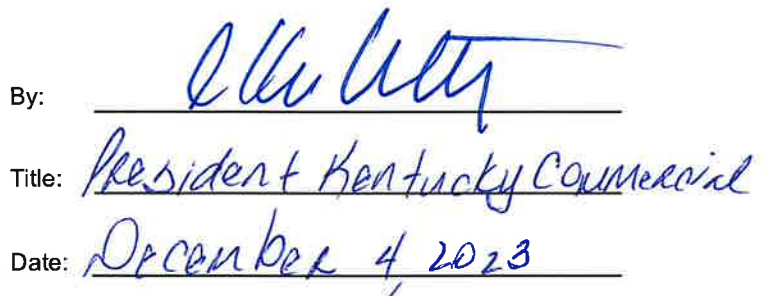 By:
Title: President Kentucky Commercial
Date: December 4, 2023